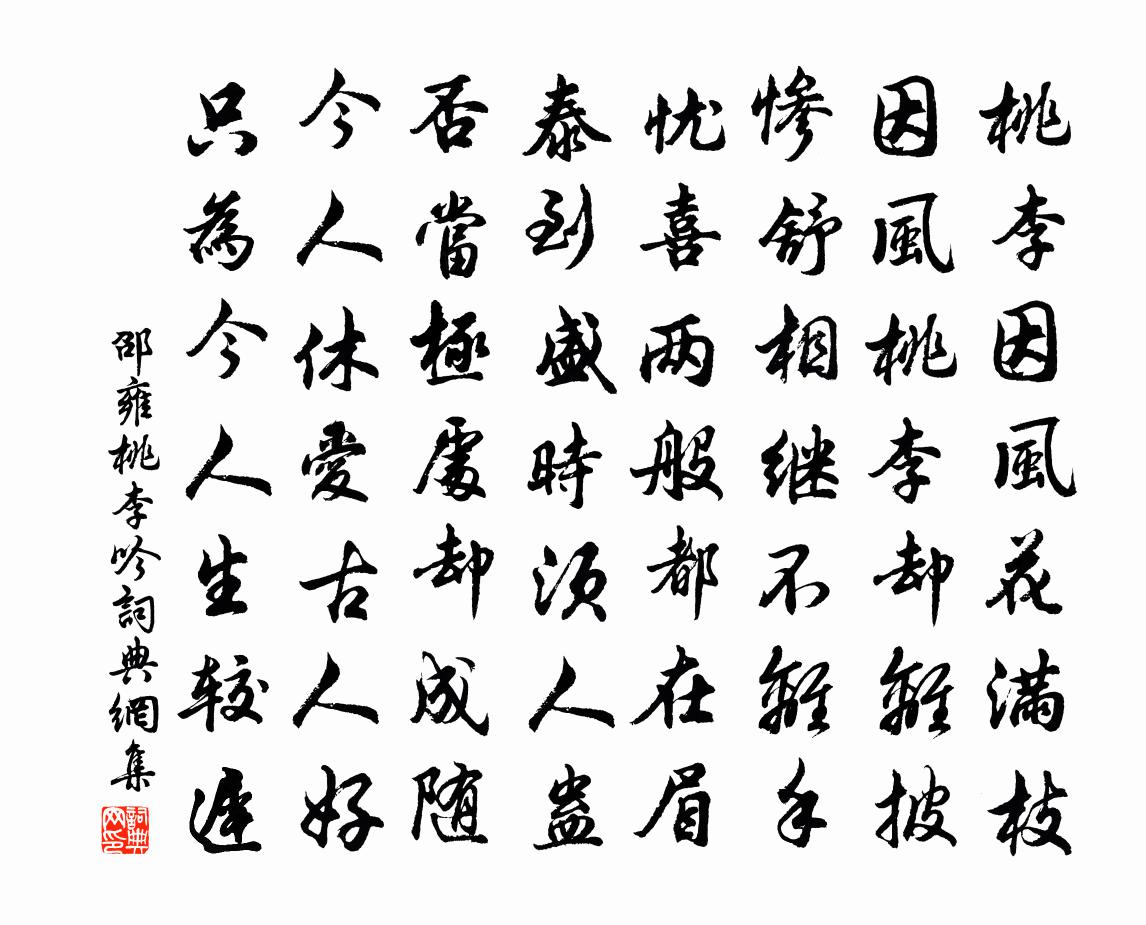 桃李因風花滿枝
因風桃李却離披
慘舒相继不離手
忧喜两般都在眉
泰到盛時須人蛊
否當極處却成随
今人休愛古人好
只為今人生较遲
邵雍桃李吟詞典網集
詞典网印